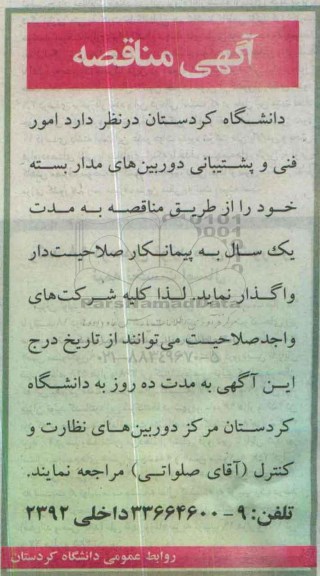 آگهی مناقصه
دانشگاه کردستان درنظر دارد امور
فنی و پشتیبانی دوربین‌های مدار بسته
خود را از طریق مناقصه به مدت
یک سال به پیمانکار صلاحیت‌دار
واگذار نماید. لذا کلیه شرکت‌های
واجدصلاحیت می‌توانند از تاریخ درج
این آگهی به مدت ده روز به دانشگاه
کردستان مرکز دوربین‌های نظارت و
کنترل (آقای صلواتی) مراجعه نمایند.
تلفن: ۹-۳۳۶۶۴۶۰۰ داخلی ۲۳۹۲
روابط عمومی دانشگاه کردستان